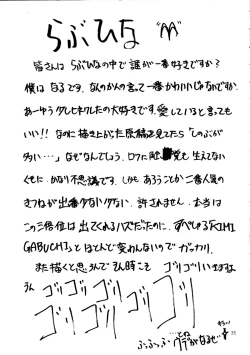 らぶひな "AA"
皆さんは らぶひなの中で 誰が一番好きですか?
僕は なるです。なんのかんの言って一番かわいいじゃないですか。
あーゆうクレヒネクレたの大好きです。愛していると言っても
いい!! なのに描き上がった原稿を見たら「しのぶが
多い…」なぜなんでしょう。ロクに触覚も生えてない
くせに。かなり不思議です。しかも あろうことか二番人気の
きつねが出番少ない少ない。許されません。本当は
この三倍位は出てくれるハズだったのに。すべしる「KIMI
GABUCHI」とほとんど変わんないので ガッカリ。
また描くと思うんで そん時こそ ゴリゴリいきますよ
そん
ゴリ ゴリ ゴリ ゴリ
ゴリ ゴリ
ふっふっふ
35